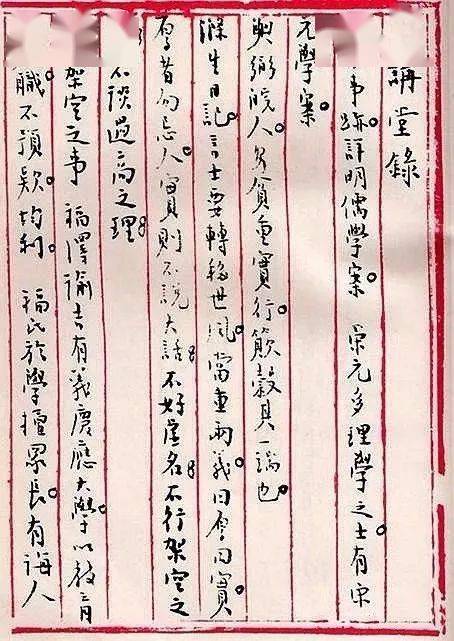 講堂錄
事跡詳明儒學案。宋元多理學之士有宋
元學案。
與弼皖人。貧重實行。穀其一端也。
滌生日記。言士要轉移世風。當重兩義曰厚曰實。
厚者勿忌人。實則不說大話。不好虛名。不行架空之
不談過高之理。
架空之事 福澤諭吉有義慶應大學。以教育
職不預。均利。 福氏於學擅眾長有誨人